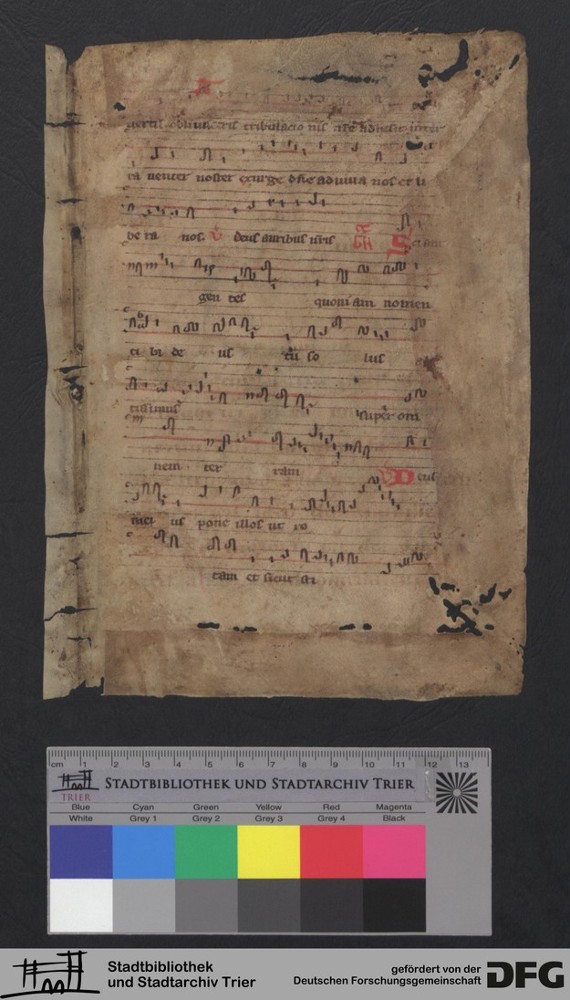 tribulacio nis
ra venter noster exurge dñe adiuva nos et li
be ra nos. deus auribus
gen tes quoniam nomen
ti bi de us tu so lus
tissimus super om
nem ter ram Deus
me us pone illos ut ro
tam et sicut sti
cm 1 2 3 4 5 6 7 8 9 10 11 12 13
TRIER STADTBIBLIOTHEK UND STADTARCHIV TRIER
Blue Cyan Green Yellow Red Magenta
White Grey 1 Grey 2 Grey 3 Grey 4 Black
Stadtbibliothek
und Stadtarchiv Trier
gefördert von der
Deutschen Forschungsgemeinschaft
DFG